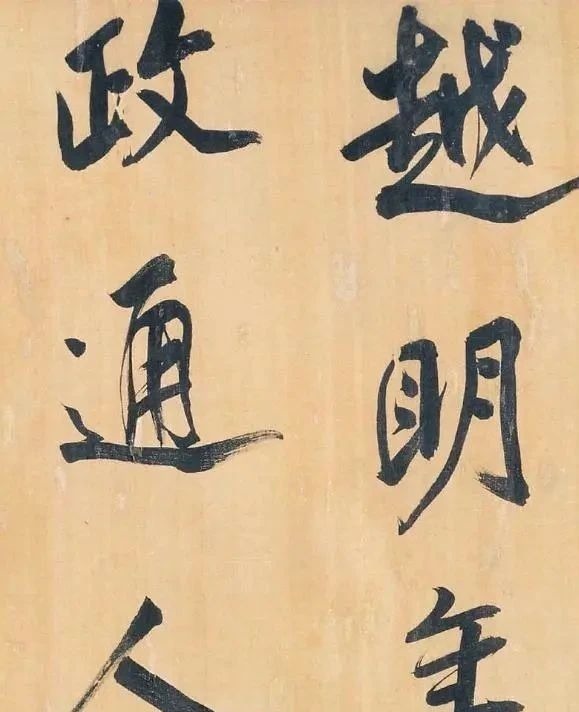 越明年
政通人